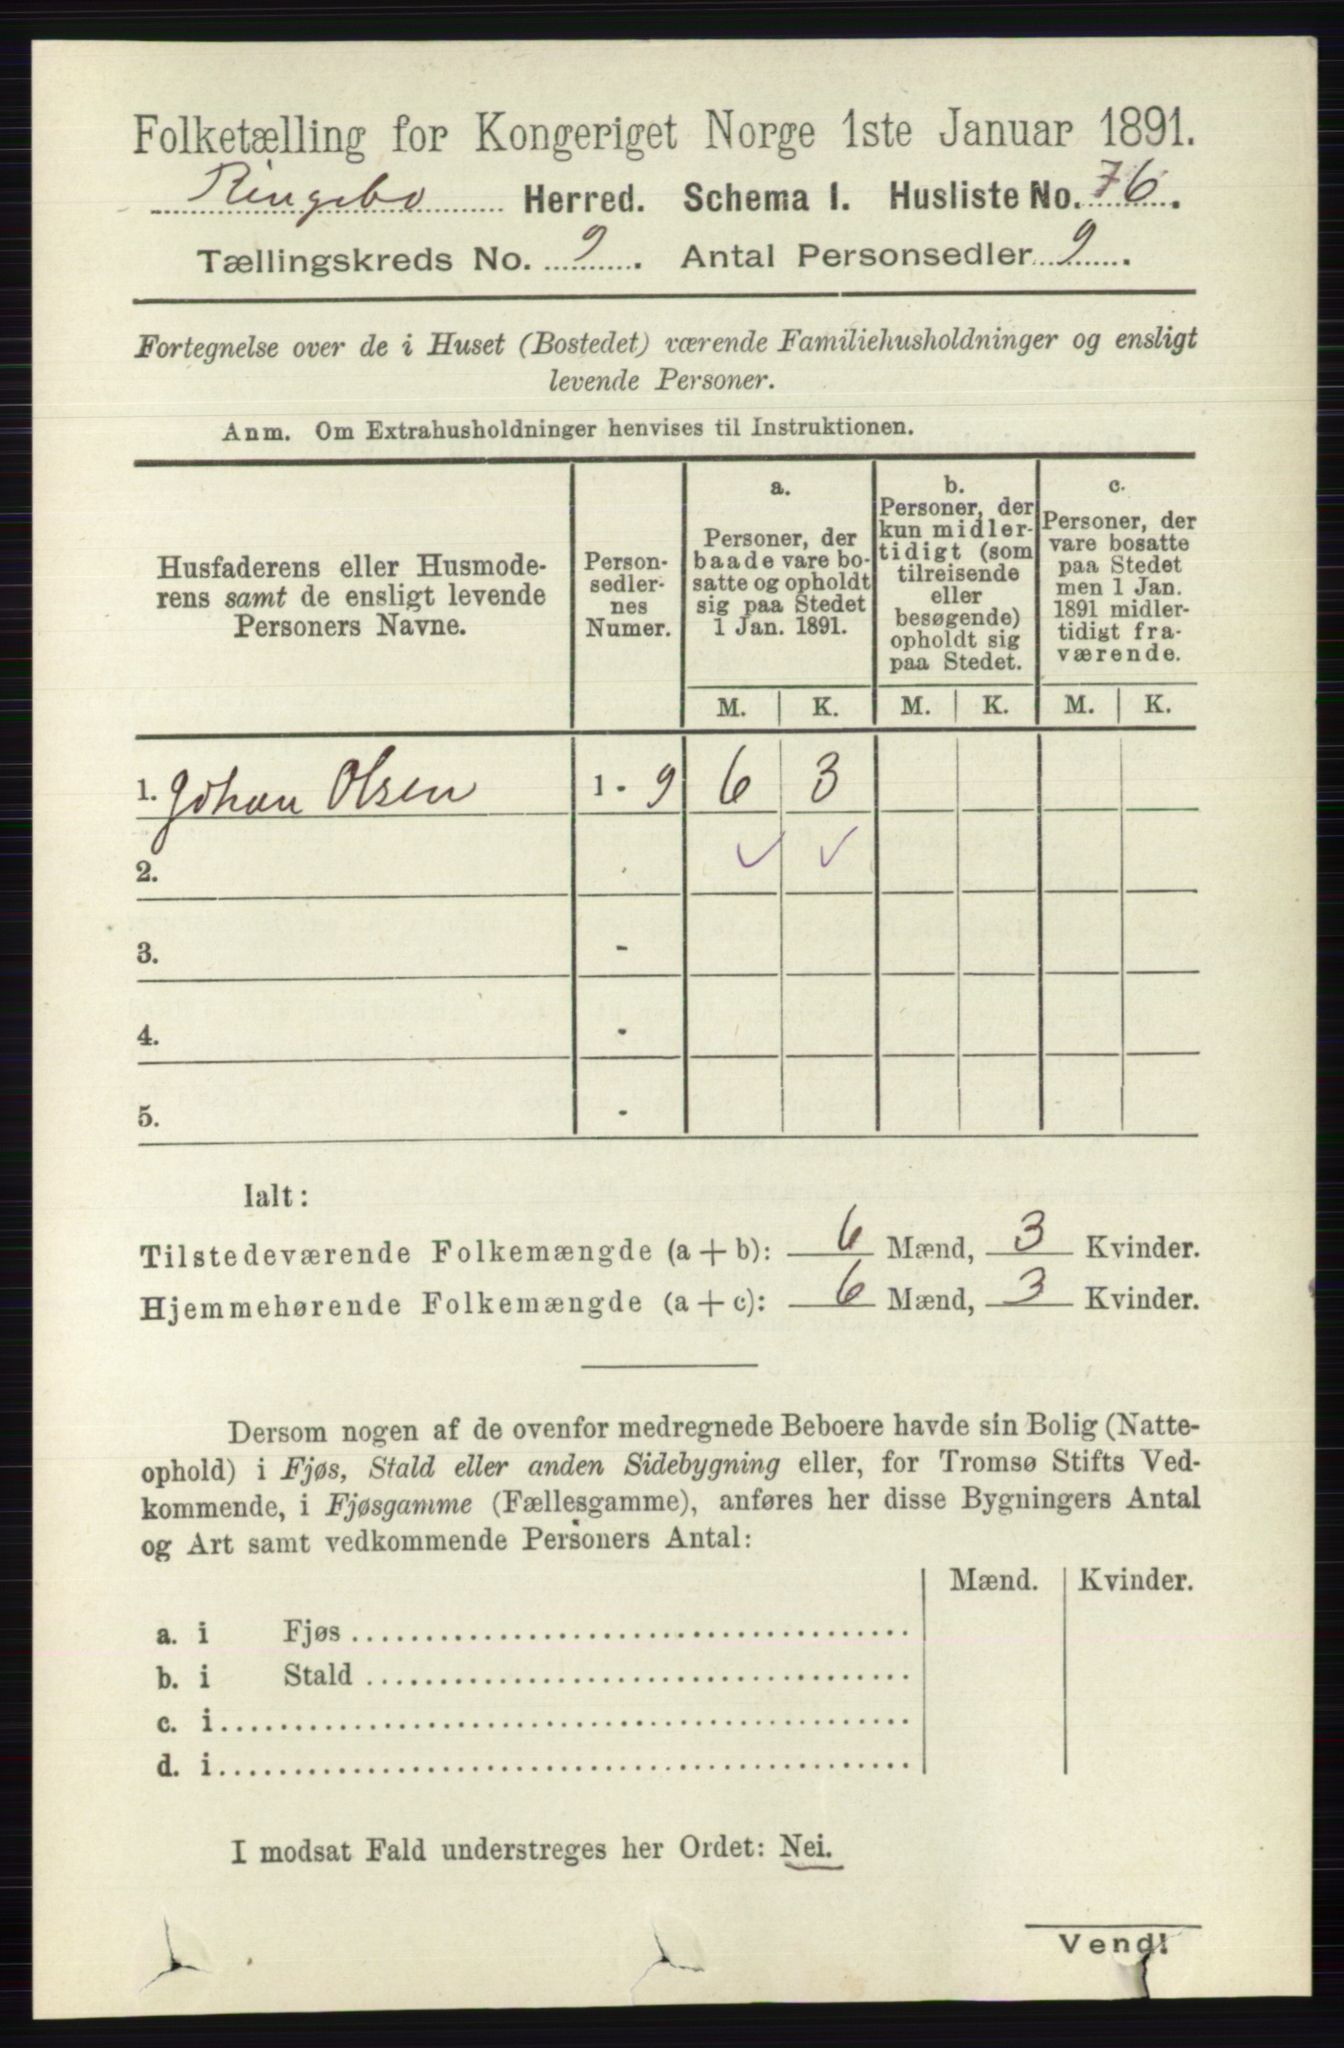 Folketælling for Kongeriget Norge 1ste Januar 1891.
Ringebo Herred. Schema I. Husliste No. 76.
Tællingskreds No. 9. Antal Personsedler 9.
Fortegnelse over de i Huset (Bostedet) værende Familiehusholdninger og ensligt
levende Personer.
Anm. Om Extrahusholdninger henvises til Instruktionen.
Husfaderens eller Husmode-
rens samt de ensligt levende
Personers Navne.
Person-
sedler-
nes
Numer.
a.
Personer, der
baade vare bo-
satte og opholdt
sig paa Stedet
1 Jan. 1891.
b.
Personer, der
kun midler-
tidigt (som
tilreisende
eller
besøgende)
opholdt sig
paa Stedet.
c.
Personer, der
vare bosatte
paa Stedet
men 1 Jan.
1891 midler-
tidigt fra-
værende.
M. K. M. K. M. K.
1. Johan Olsen 1 - 9 6 3
2. ✓ ✓
3. -
4. -
5. -
Ialt:
Tilstedeværende Folkemængde (a + b): 6 Mænd, 3 Kvinder.
Hjemmehørende Folkemængde (a + c): 6 Mænd, 3 Kvinder.
Dersom nogen af de ovenfor medregnede Beboere havde sin Bolig (Natte-
ophold) i Fjøs, Stald eller anden Sidebygning eller, for Tromsø Stifts Ved-
kommende, i Fjøsgamme (Fællesgamme), anføres her disse Bygningers Antal
og Art samt vedkommende Personers Antal:
Mænd. Kvinder.
a. i Fjøs
b. i Stald
c. i
d. i
I modsat Fald understreges her Ordet: Nei.
Vend!